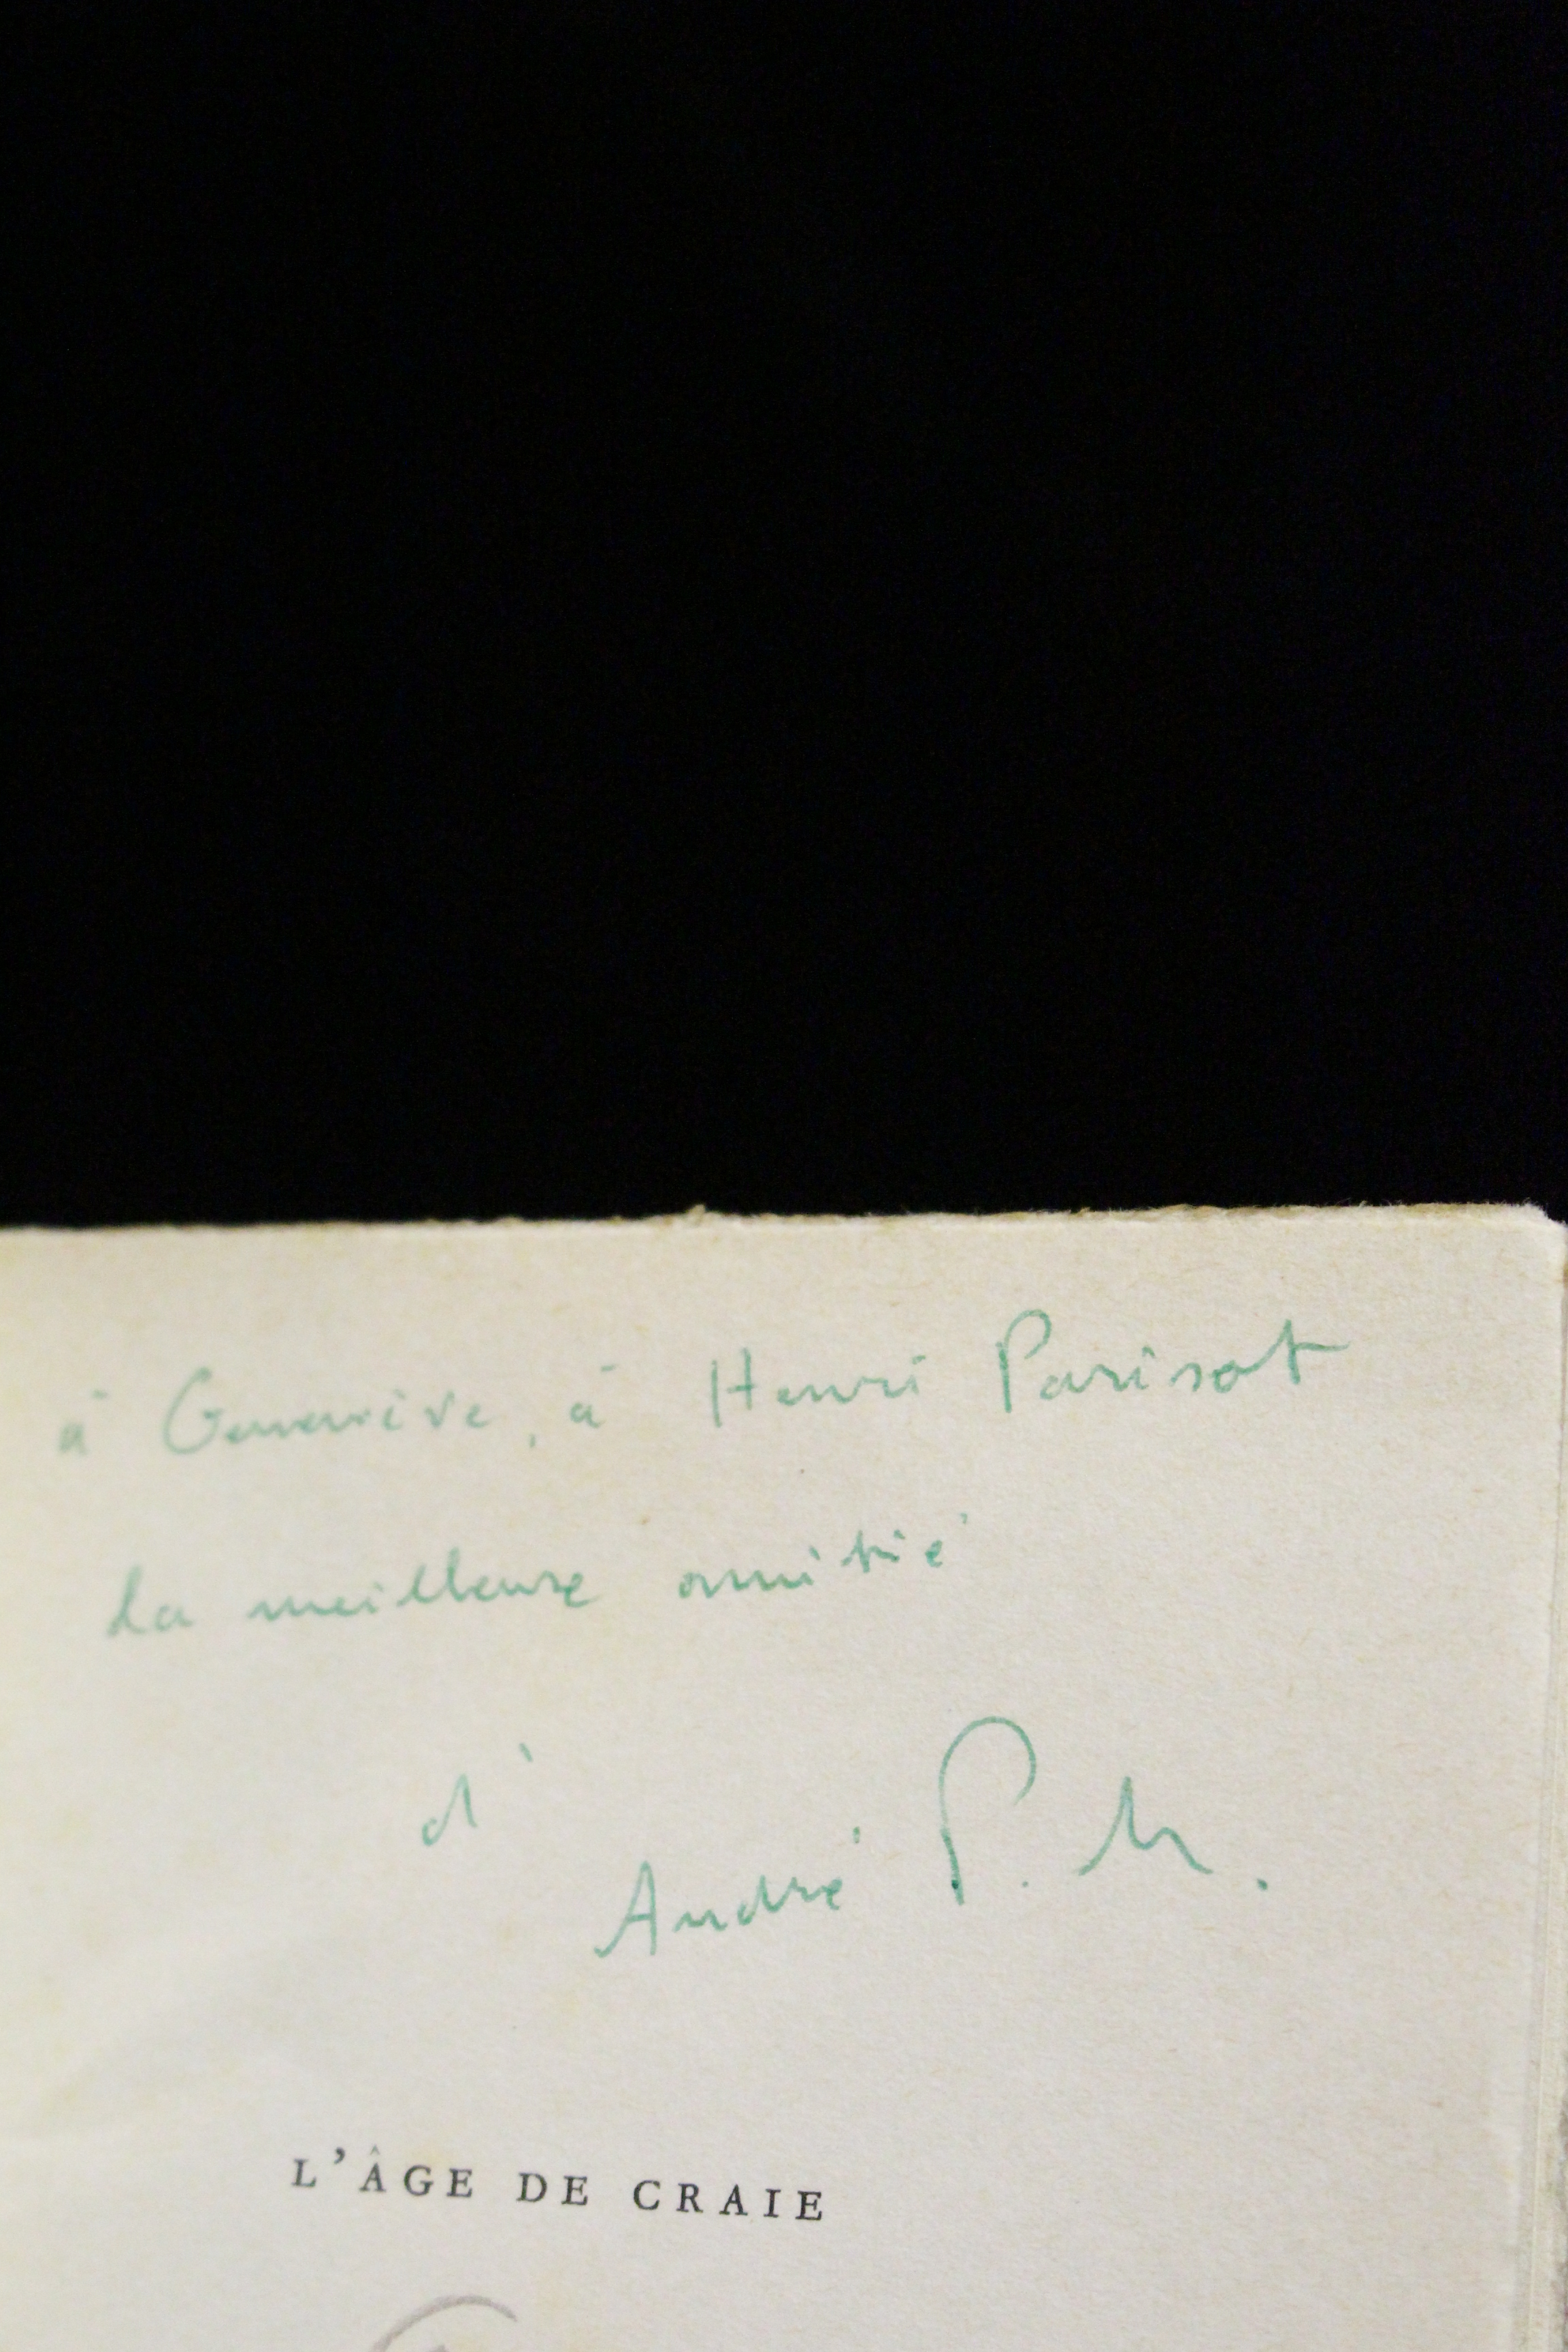 à Geneviève, à Henri Parisot
la meilleure amitié
d'
André P. M.
L'ÂGE DE CRAIE